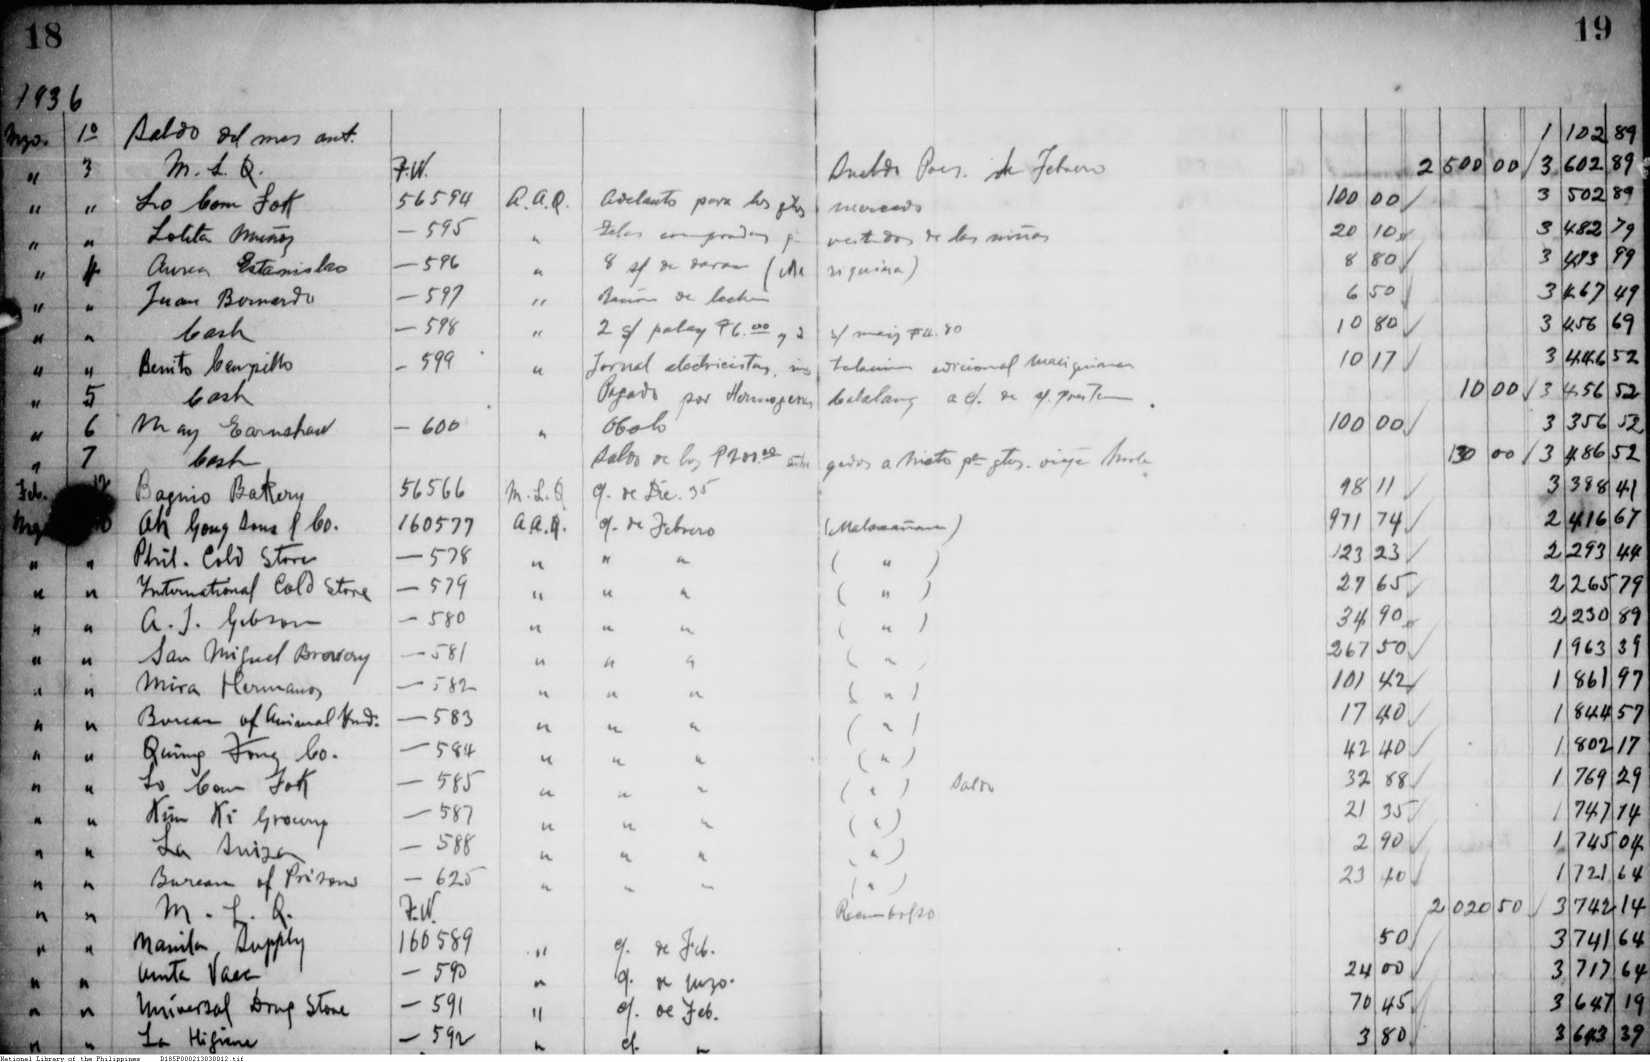 18 19
1936
Mzo. 1º Saldo del mes ant. 1 102 89
" 3 M. L. Q. F.W. Sueldo Pres. de Febrero 2 500 00 / 3 602 89
" " Lo Com Fok 56594 A.A.Q. Adelanto para los gtos mercado 100 00 / 3 502 89
" " Lolita Muñoz — 595 " Telas compradas p. vestidos de las niñas 20 10 3 482 79
" " Aurea Estanislao — 596 " 8 de (Ma riquina) 8 80 / 3 473 99
" " Juan Bernardo — 597 " de 6 50 3 467 49
" " Cash — 598 " 2 s/ palay ₱6.00 y 2 s/ maiz ₱4.80 10 80 / 3 456 69
" " Benito Campillo — 599 " Jornal electricistas, ins talacion adicional Mariquina 10 17 / 3 446 52
" 5 Cash Pagado por Hermogenes Catalang a c/. de 10 00 / 3 456 52
" 6 May Earnshaw — 600 " Obolo 100 00 / 3 356 52
" 7 Cash Saldo de los ₱200.00 entre gados a Nieto pa gtos. viaje 130 00 / 3 486 52
Feb. 12 Baguio Bakery 56566 M.L.Q c/. de Dic. 35 98 11 / 3 388 41
Mzo 10 Ah Gong Sons & Co. 160577 A.A.Q. c/. de Febrero (Malacañan) 971 74 / 2 416 67
" " Phil. Cold Store — 578 " " " ( " ) 123 23 / 2 293 44
" " International Cold Store — 579 " " " ( " ) 27 65 / 2 265 79
" " A. J. Gibson — 580 " " " ( " ) 34 90 2 230 89
" " San Miguel Brewery — 581 " " " ( " ) 267 50 / 1 963 39
" " Mira Hermanos — 582 " " " ( " ) 101 42 / 1 861 97
" " Bureau of Animal Ind. — 583 " " " ( " ) 17 40 / 1 844 57
" " Quing Fong Co. — 584 " " " ( " ) 42 40 / 1 802 17
" " Lo Com Fok — 585 " " " ( " ) Saldo 32 88 / 1 769 29
" " Kim Ki Grocery — 587 " " " ( " ) 21 35 / 1 747 94
" " La Suiza — 588 " " " ( " ) 2 90 / 1 745 04
" " Bureau of Prisons — 625 " " " ( " ) 23 40 / 1 721 64
" " M. L. Q. F.W. Reembolso 2 020 50 / 3 742 14
" " Manila Supply 160589 " c/. de Feb. 50 / 3 741 64
" " Vaca — 590 " c/. de Mzo. 24 00 / 3 717 64
" " Universal Drug Store — 591 " c/. de Feb. 70 45 / 3 647 19
" " La Higiene — 592 " c/. " 3 80 / 3 643 39
National Library of the Philippines D185P000213030012.tif